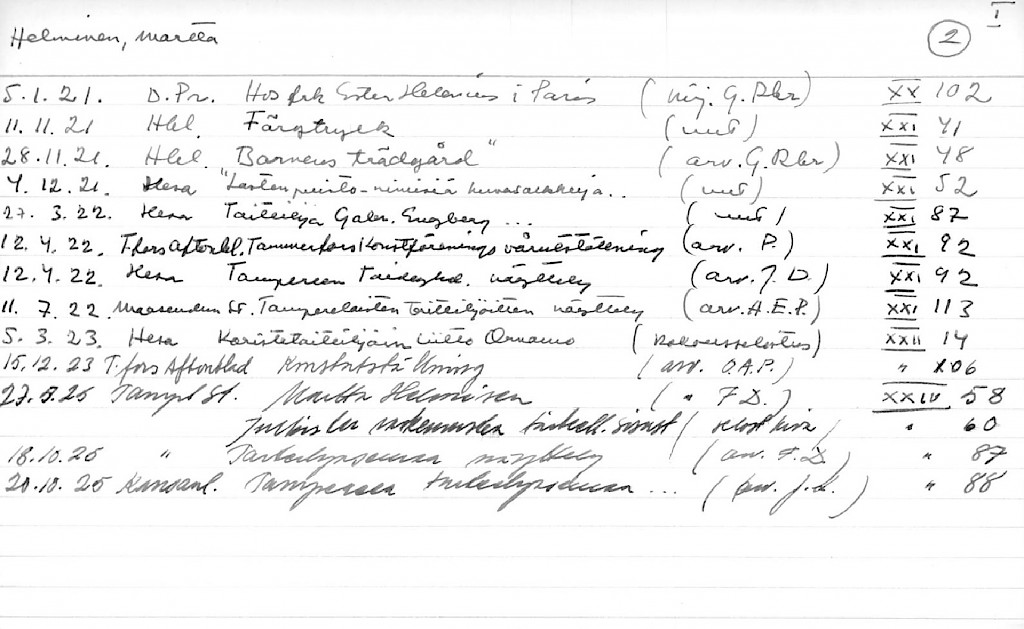 I
Helminen, Martta 2
5.1.21. D.Pr. Hos frk Ester Helenius i Paris ( G. Rbr) XX 102
11.11.21 Hbl. Färgtryck (uut) XXI 41
28.11.21. Hbl. "Barnens trädgård" (arv. G. Rbr) XXI 48
4.12.21. Hesa "Lasten puisto-nimisiä kuvasarkkeja.. (uut) XXI 52
27.3.22. Hesa Taiteilija Gabr. Engberg ... (uut) XXI 82
12.4.22. T.fors Aftonbl. Tammerfors Konstförenings vårutställning (arv. P.) XXI 92
12.4.22. Hesa Tampereen Taideyhd. näyttely (arv. J. D.) XXI 92
11. 7.22. Maaseudun St. Tamperelaisten taiteilijoitten näyttely (arv. A.E.P.) XXI 113
5. 3. 23. Hesa Koristetaiteilijain liitto Ornamo (kokousselostus) XXII 14
15.12.23 T.fors Aftonblad Konstutställning (arv. O.A.P.) " 106
27.9.25 Tampl St. Martta Helminen ( " F D.) XXIV 58
Julkisten rakennusten taiteell. sisust ( ) " 60
18.10.25 " Taiteilijaseuran näyttely (arv. F.D.) " 87
20.10.25 Kansanl. Tampereen taiteilijaseuran ... (arv. J. L.) " 88